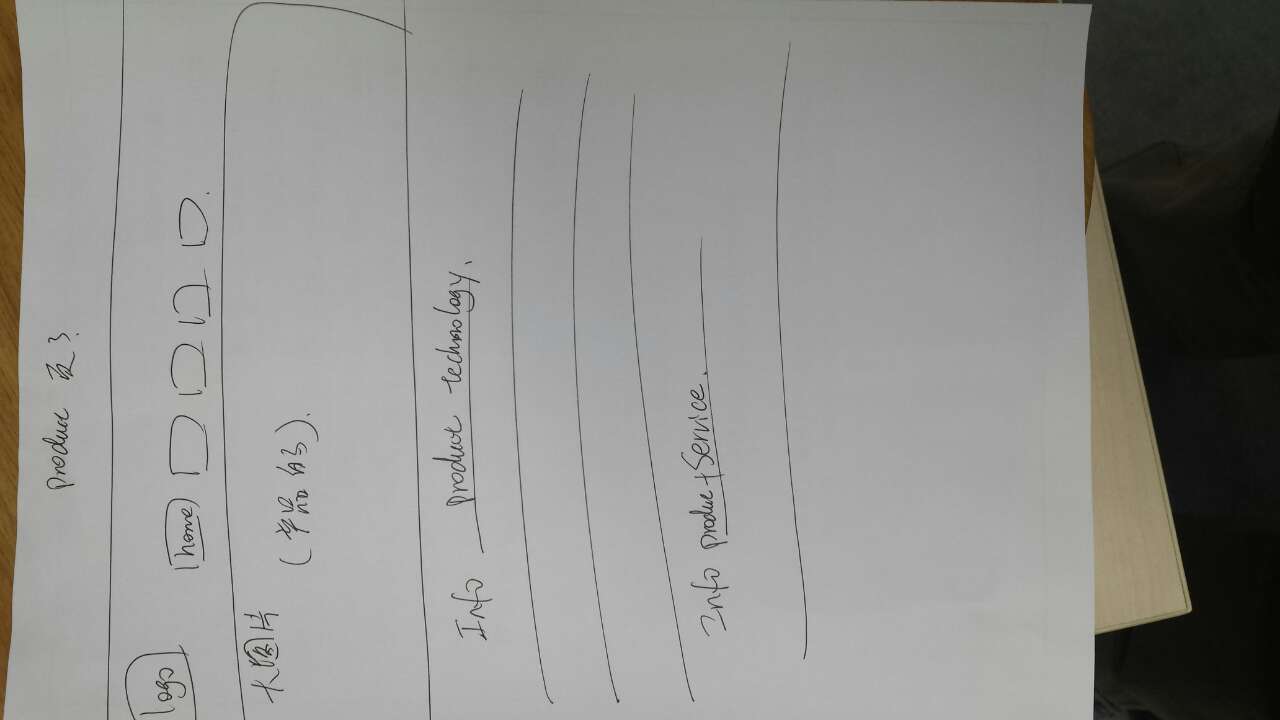 product 页3.
logo
home
大图片 (学品的).
Info product technology.
Info product + Service.